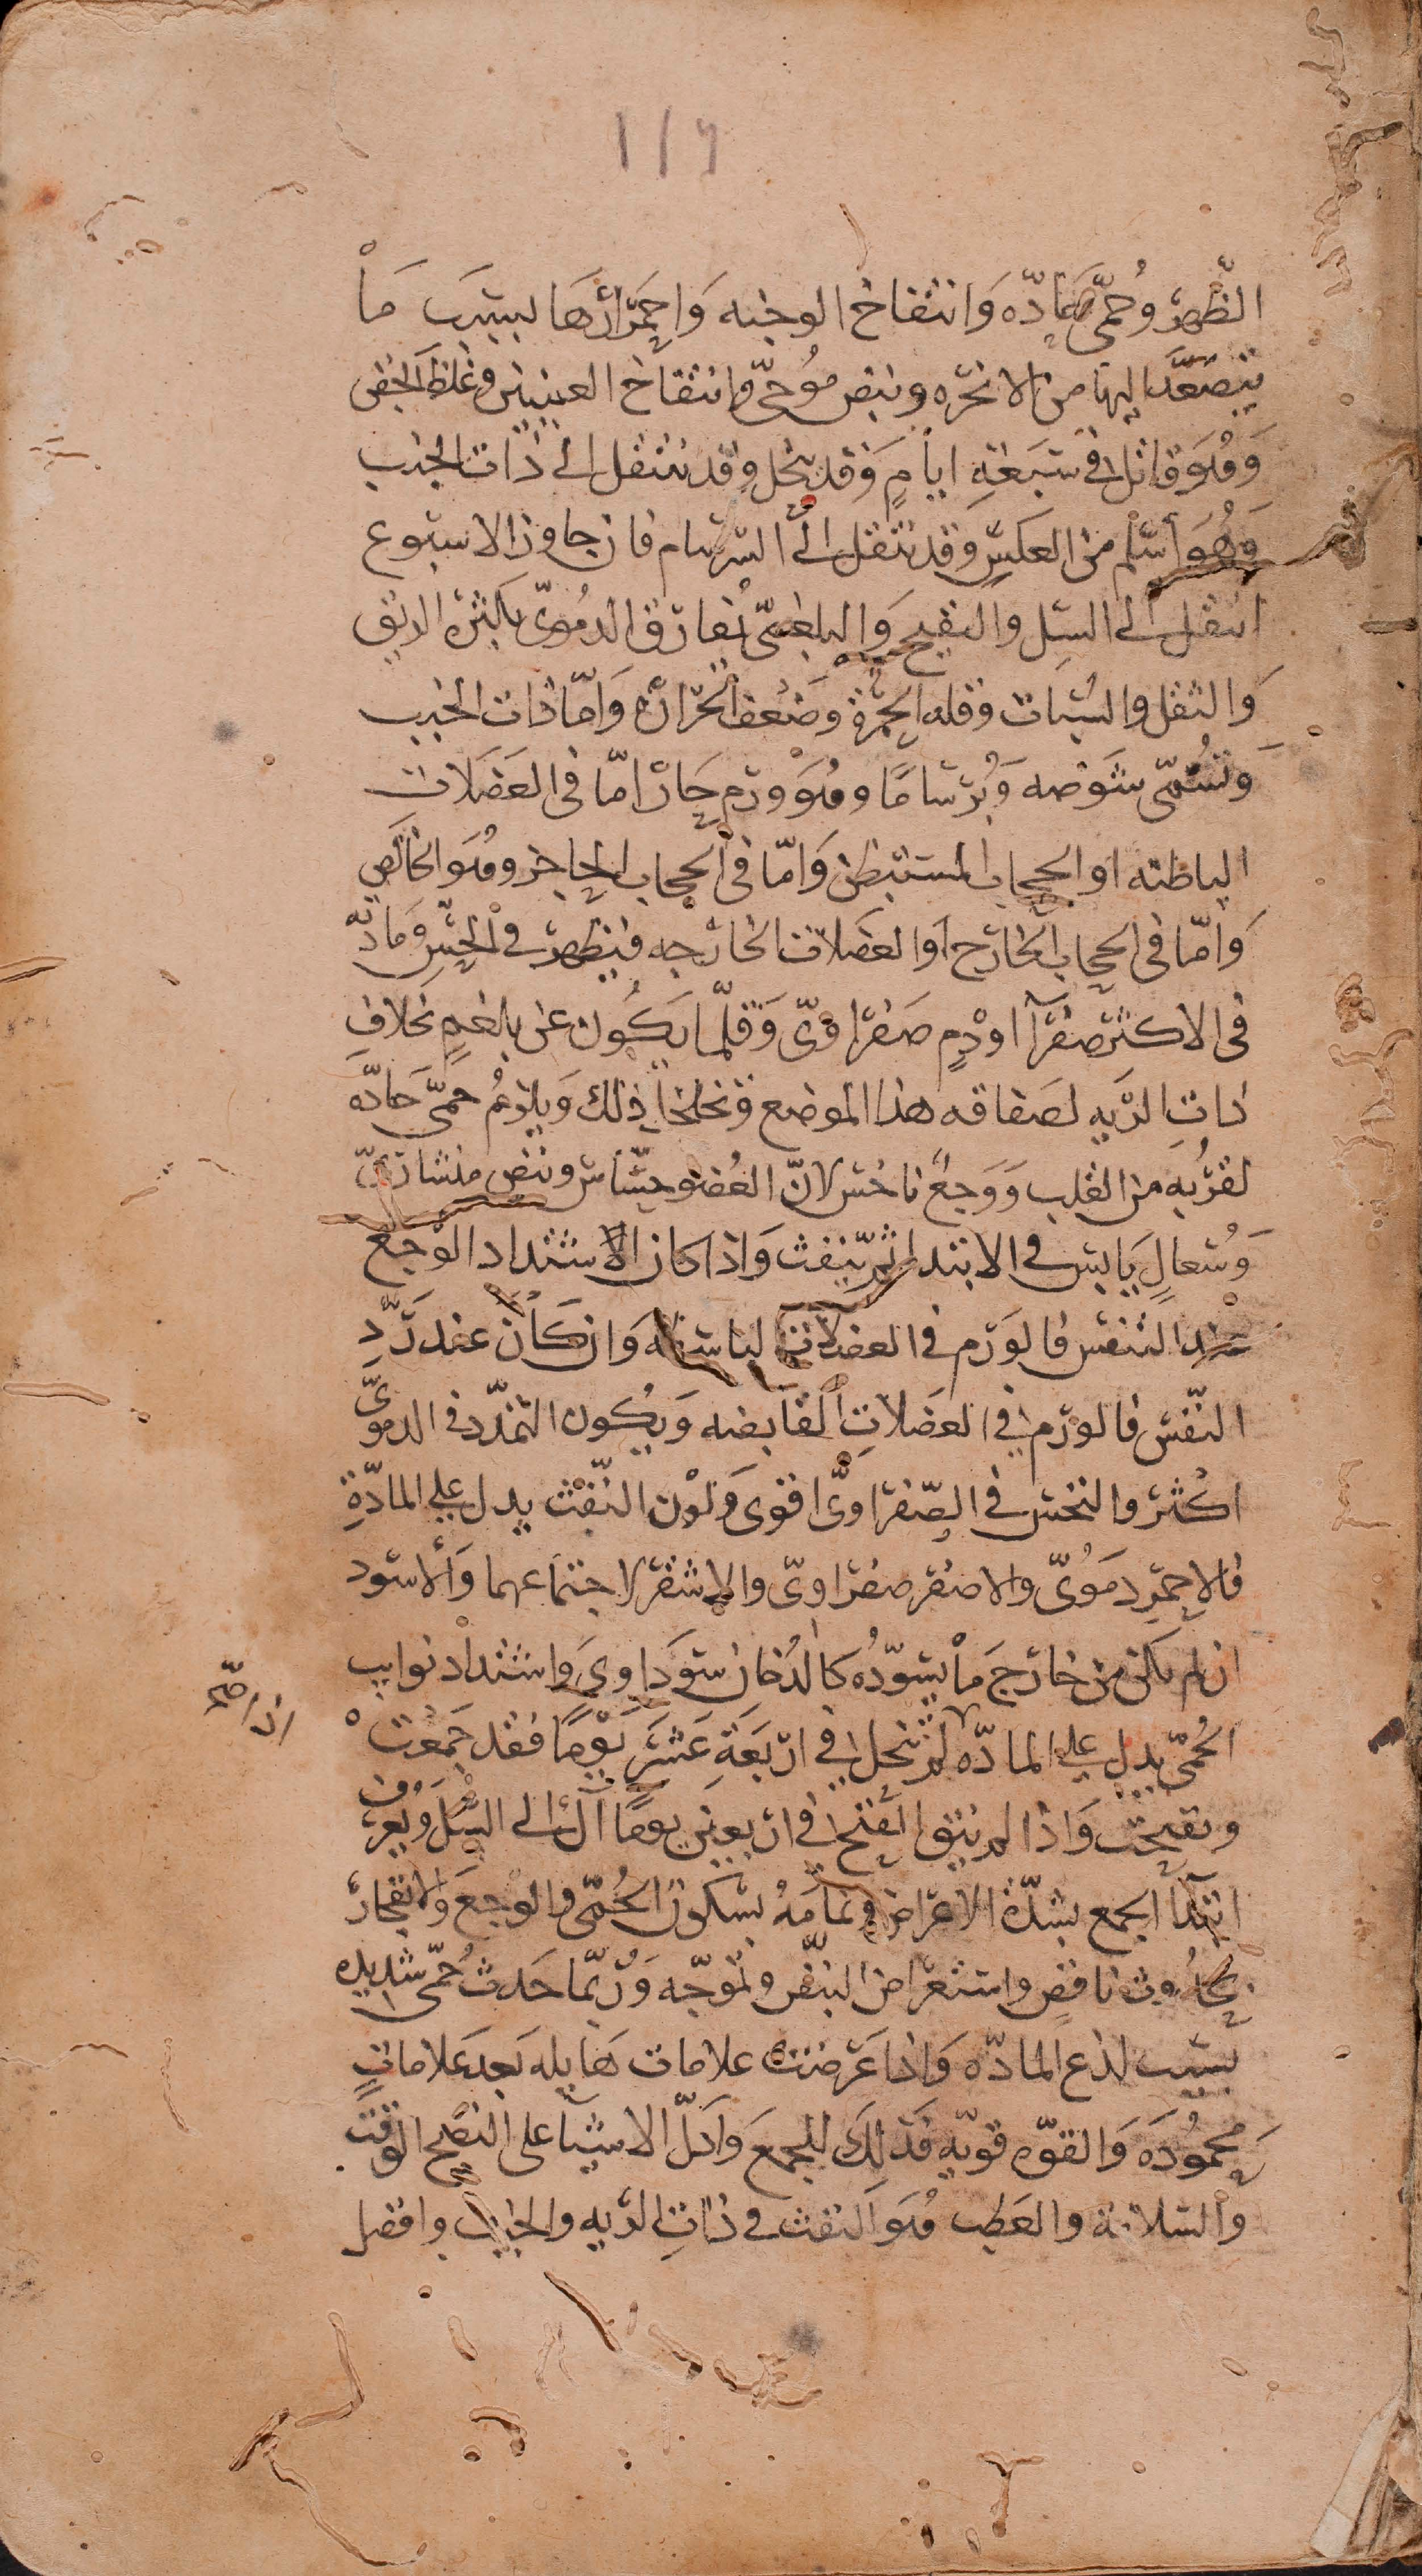 ١١٦
الظّهر وحُمّى حادّه وانتفاخ الوجنه وَاحمَرارهَا بسبَب مَا
يتصَعّد اليها من الابخره ونبض موُجىّ وانتفاخ العينين وغلظ الجفن
وَهُوَ قاتل في سَبعَةِ ايامٍ وَقد ينحل وقد ينتقل الى ذات الجنب
وَهُوَ أسَلم من العكسِ وقد ينتقل الى السّرسام فان جاوز الاسبوع
انتقل الى السِل والتقيح وَالبلغمىّ يُفارق الدموُىّ بكثرة الريق
وَالثقل والسُبات وقله الحمرة وضَعف الحرارة وَامّا ذات الجنب
وَتُسَمّى شَوصه وَبُرسَامًا وهُوَ ورم حَارّ امّا فى العَضَلات
الباطنه او الحجاب المستبطن وَامّا فى الحجاب الحاجز وهُوَ الخالص
وَامّا فى الحجاب الخارج اَوالعضَلات الخارجه فيظهر في الحِسّ وَمَادّته
فى الاكثر صفرآ او دمٍ صَفراوىّ وَقلّما يَكُون عن بلغمٍ بخلاف
ذاتِ الرّيه لصَفاقه هذا الموضع وتخلخل ذلك وَيلزمُ حمىّ حَادّه
لقرُبه من القلب وَوَجعٌ ناخسٌ لانّ العُضو حِسّاس ونبض منشارىّ
وَسُعالٍ يَابس في الابتدا ثم ينفث وَاذا كان الاشتداد الوَجَع
عند التنفس فالوَرم في العضلات الباسطه وَان كَان عند رَدِّ
النّفَس فالورم في العضَلاتِ القابضه وَيكُون التمدّد في الدموىّ
اكثر والنخس في الصّفراوىّ اقوى وَلون النّفث يدل على المادّةِ
فالاحمر دمَوُىّ والاصفر صفراوىّ والاشقر لاجتماعهما وَالاسود
ان لم يكن من خارجَ مَا يُسَوّدُه كالدُخان سَودَاوى وَاشتداد نوايب
الحُمّى يدل على المادّه لم تنحل في اربَعَةِ عَشَرَ يَوْمًا فقد جَمعَتْ
اذا صح
وتقيحت وَاذا لم ينق القيح في اربعين يومًا آل الى السّل وَيُعرَف
ابتدآ الجمع بشدّة الاعراض وتمامهُ بسكون الحُمّى والوجع وَالانفجار
بحدُوث نافضٍ واستعراض النبض وتموّجه وَرُبّما حَدث حُمّى شديده
بسَبب لذع المادّه وَاذا عَرضت علامات هَايله بَعدَ عَلاماتٍ
محمُودَه وَالقوّه قويّه فذلِكَ للجمعَ وَادَلّ الاشيَا على النضج الوقت
والسّلامة والعَطب هُوَ النفث في ذاتِ الريه والجنب وافضل